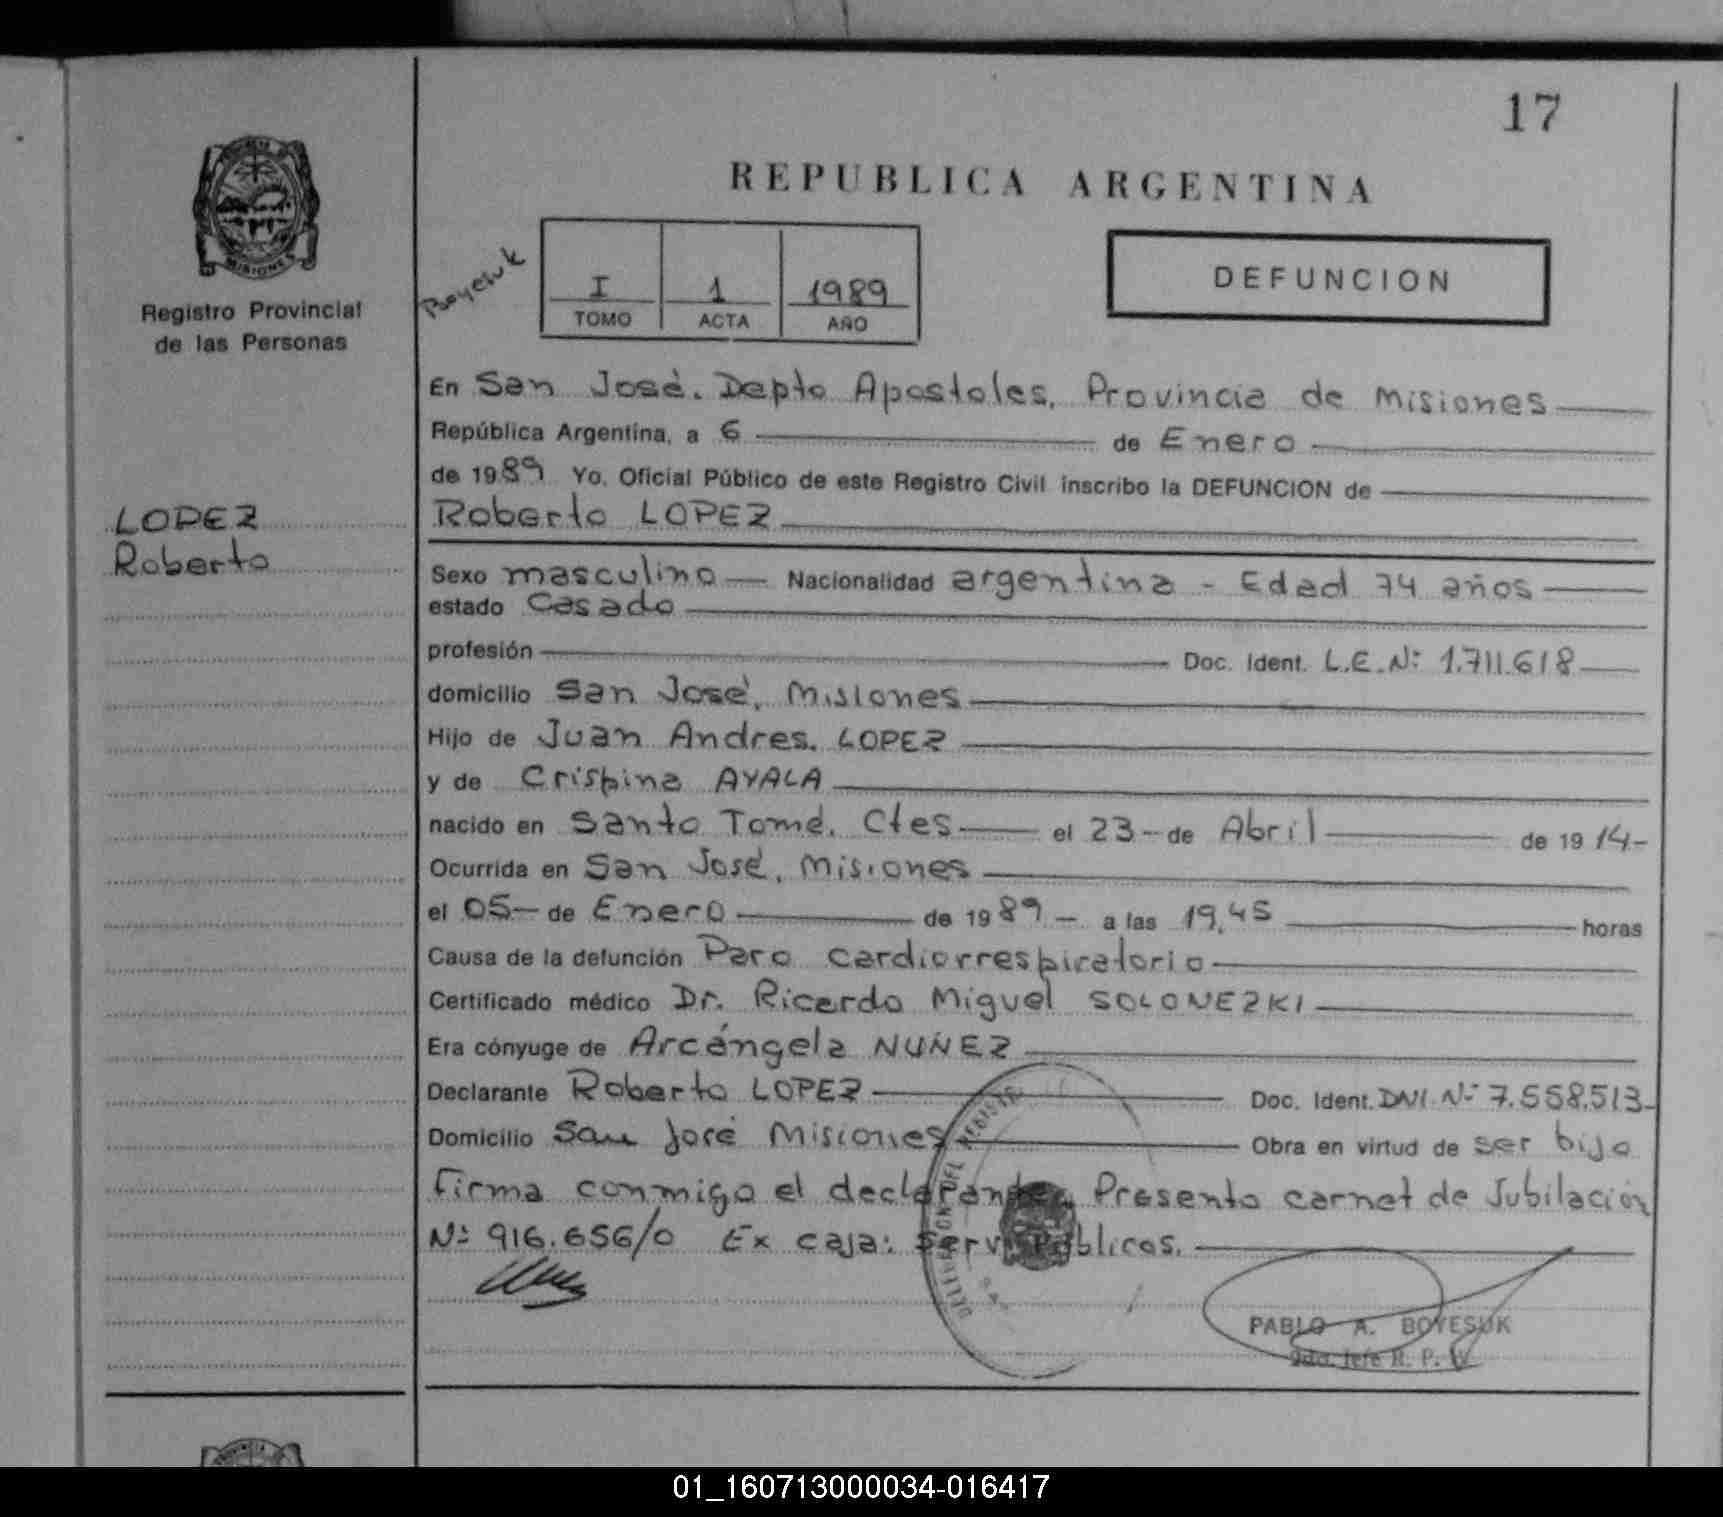 17
REPUBLICA ARGENTINA
MISIONES
Registro Provincial
de las Personas
Boyesuk
I 1 1989
TOMO ACTA AÑO
DEFUNCION
En San José. Depto Apostoles, Provincia de Misiones
República Argentina, a 6 de Enero
de 1989 Yo, Oficial Público de este Registro Civil inscribo la DEFUNCION de
LOPEZ
Roberto
Roberto LOPEZ
Sexo masculino Nacionalidad argentina - Edad 74 años
estado Casado
profesión Doc. Ident. L.E.Nº 1.711.618
domicilio San José, Misiones
Hijo de Juan Andres. LOPEZ
y de Crispina AYALA
nacido en Santo Tomé. Ctes el 23 de Abril de 1914-
Ocurrida en San José, Misiones
el 05 de Enero de 1989 - a las 19,45 horas
Causa de la defunción Paro cardiorrespiratorio
Certificado médico Dr. Ricardo Miguel SOLONEZKI
Era cónyuge de Arcángela NUÑEZ
Declarante Roberto LOPEZ Doc. Ident. DNI Nº 7.558.513-
Domicilio San José Misiones Obra en virtud de ser hijo
Firma conmigo el declarante. Presento carnet de Jubilación
Nº 916.656/0 Ex caja: Serv. Públicos.
PABLO A. BOYESUK
Jefe R. P.
01_160713000034-016417